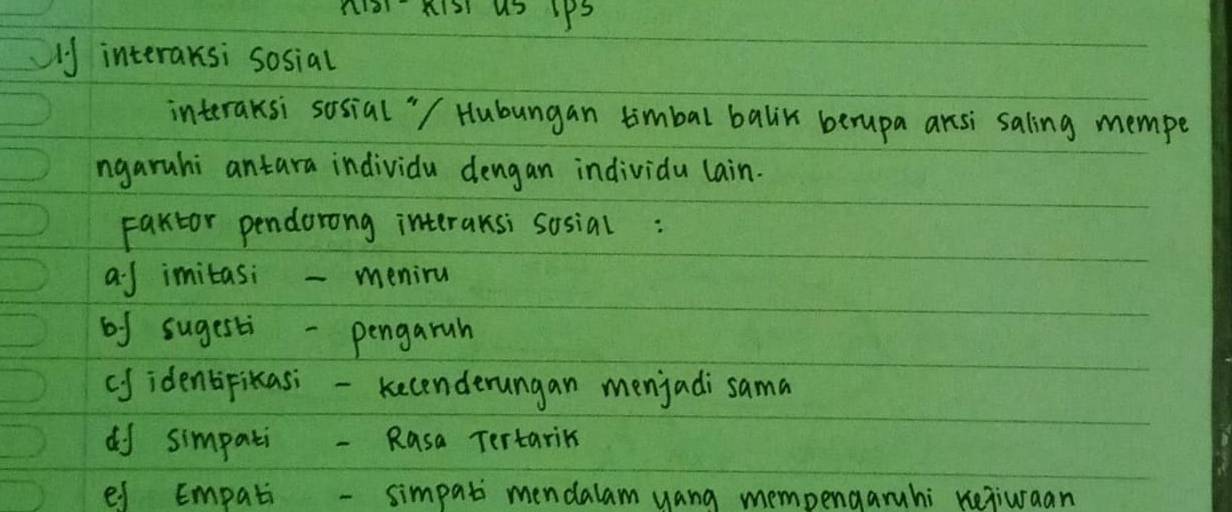 kisi - kisi us ips
1.) interaksi sosial
interaksi sosial "/ Hubungan timbal balik berupa aksi saling mempe
ngaruhi antara individu dengan individu lain.
Faktor pendorong interaksi sosial :
a.) imitasi - meniru
b.) sugesti - pengaruh
c.) identifikasi - kecenderungan menjadi sama
d.) simpati - Rasa Tertarik
e.) Empati - simpati mendalam yang mempengaruhi kejiwaan